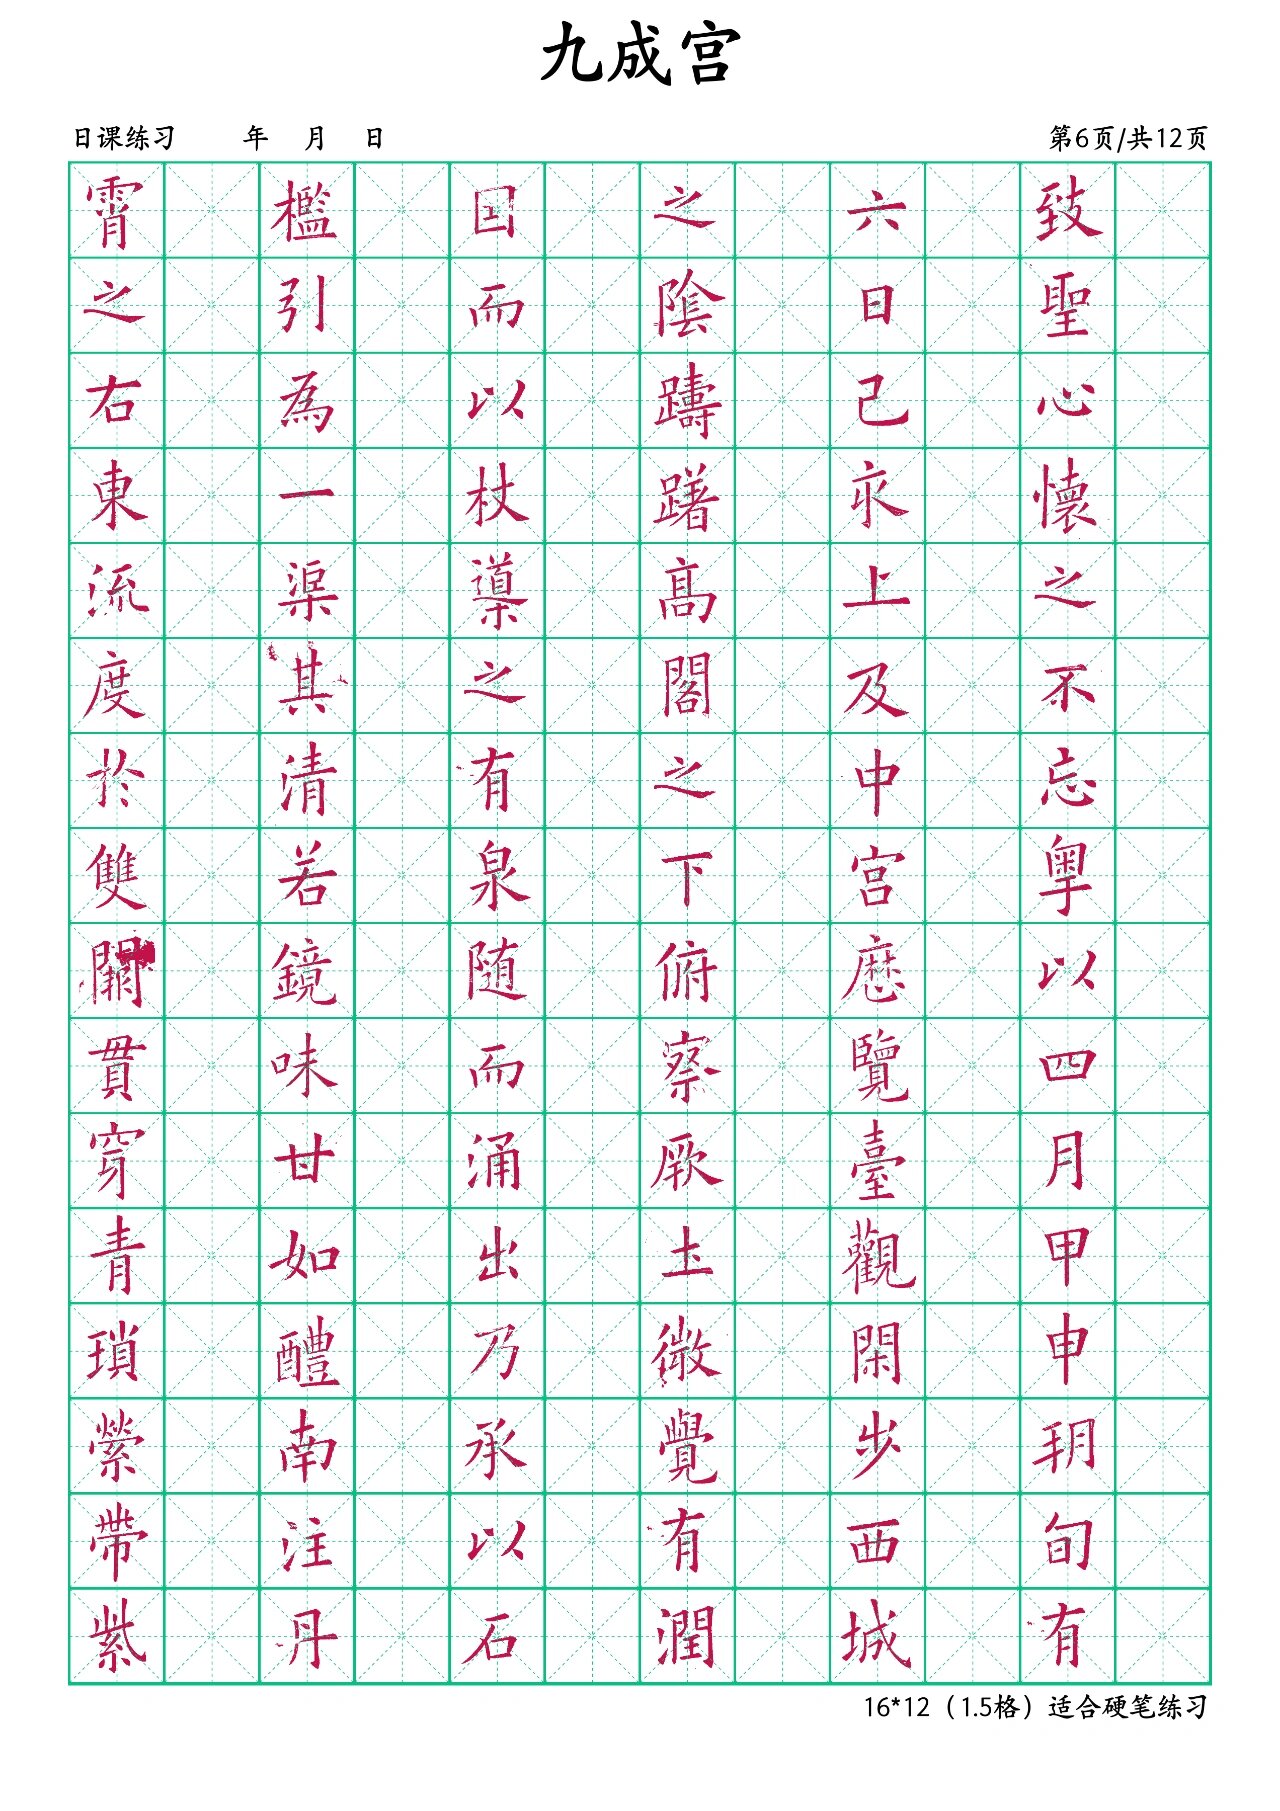 九成宫
日课练习 年 月 日
第6页/共12页
致聖心懷之不忘粵以四月甲申朔旬有
六日己亥上及中宮歷覽臺觀閑步西城
之陰躊躇高閣之下俯察厥土微覺有潤
因而以杖導之有泉随而涌出乃承以石
檻引為一渠其清若鏡味甘如醴南注丹
霄之右東流度於雙闕貫穿青瑣縈帶紫
16*12（1.5格）适合硬笔练习